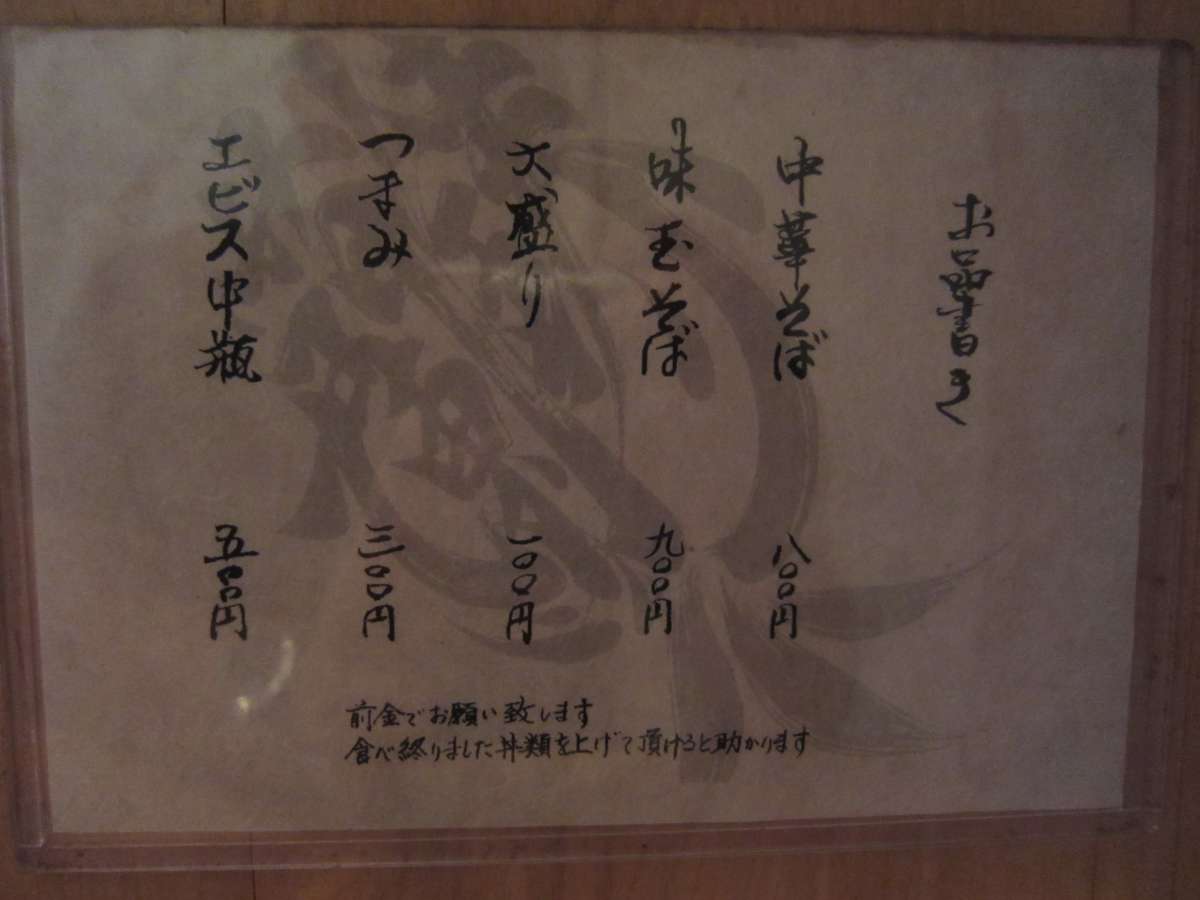 お品書き
中華そば 八〇〇円
味玉そば 九〇〇円
大盛り 一〇〇円
つまみ 三〇〇円
ヱビス中瓶 五〇〇円
前金でお願い致します
食べ終りました丼類を上げて頂けると助かります